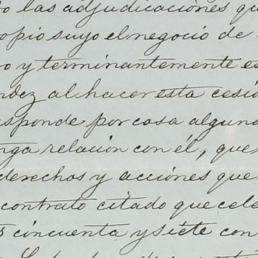 o las adjudicaciones qu
opio suyo el negocio de
o y terminantemente es
ndez al hacer esta cesió
sponde por cosa alguna
nga relacion con él, que
derechos y acciones que
contrato citado que cele
s cincuenta y siete con